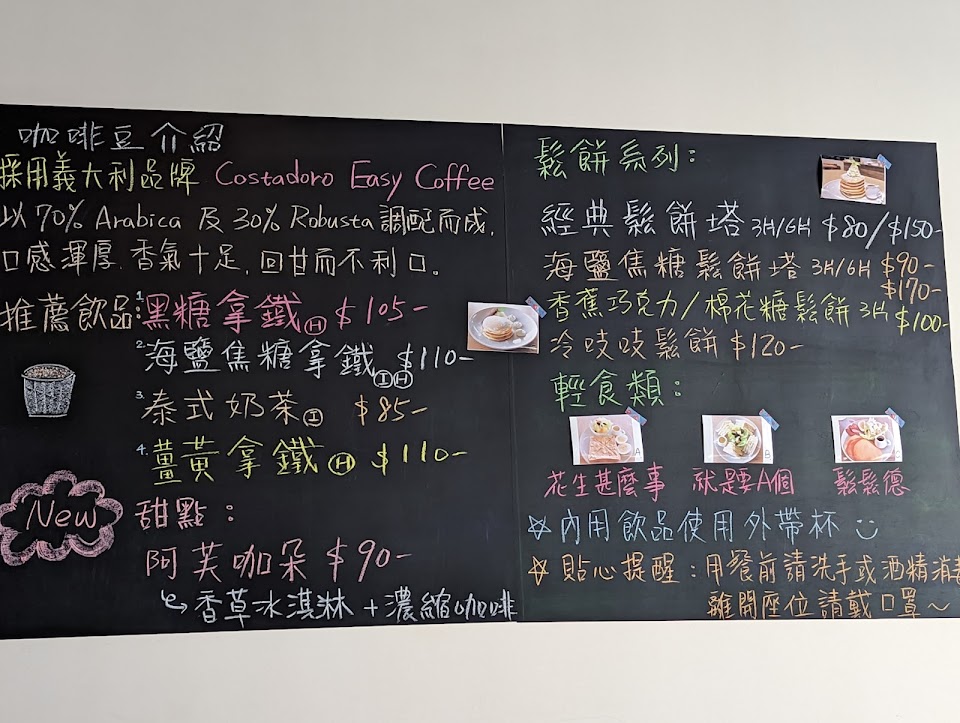 咖啡豆介紹
採用義大利品牌 Costadoro Easy Coffee
以70% Arabica 及30% Robusta調配而成,
口感渾厚.香氣十足,回甘而不利口。
推薦飲品:1.黑糖拿鐵Ⓗ $105-
2.海鹽焦糖拿鐵ⒾⒽ $110-
3.泰式奶茶Ⓘ $85-
4.薑黃拿鐵Ⓗ $110-
New
甜點:
阿芙咖朵 $90-
香草冰淇淋+濃縮咖啡
鬆餅系列:
經典鬆餅塔 3片/6片 $80/$150-
海鹽焦糖鬆餅塔 3片/6片 $90-
$170-
香蕉巧克力/棉花糖鬆餅 3片 $100-
冷吱吱鬆餅 $120-
輕食類:
A B
花生甚麼事 就是要A個 鬆鬆德
☆內用飲品使用外帶杯
☆貼心提醒:用餐前請洗手或酒精消毒
離開座位請戴口罩～